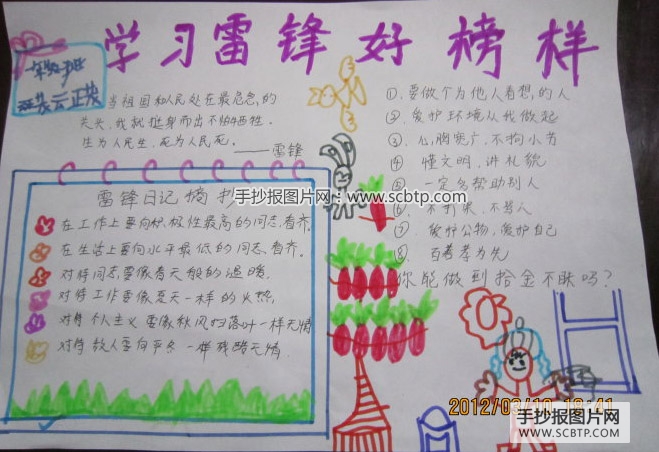 学习雷锋好榜样
一年级班
当祖国和人民处在最危急的
关头,我就挺身而出不怕牺牲。
生为人民生,死为人民死。
——雷锋
雷锋日记摘
在工作上要向积极性最高的同志看齐。
在生活上要向水平最低的同志看齐。
对待同志要像春天般的温暖。
对待工作要像夏天一样的火热,
对待个人主义要像秋风扫落叶一样无情
对待敌人要向严冬一样残酷无情。
①、要做个为他人着想的人
②、爱护环境从我做起
③、心胸宽广,不拘小节
④、懂文明,讲礼貌
⑤、一定多帮助别人
⑥、不打架、不骂人
⑦、爱护公物,爱护自己
⑧、百善孝为先
你能做到拾金不昧吗?
手抄报图片网:www.scbtp.com
2012/03/10 18:41
手抄报图片网
WWW.SCBTP.COM